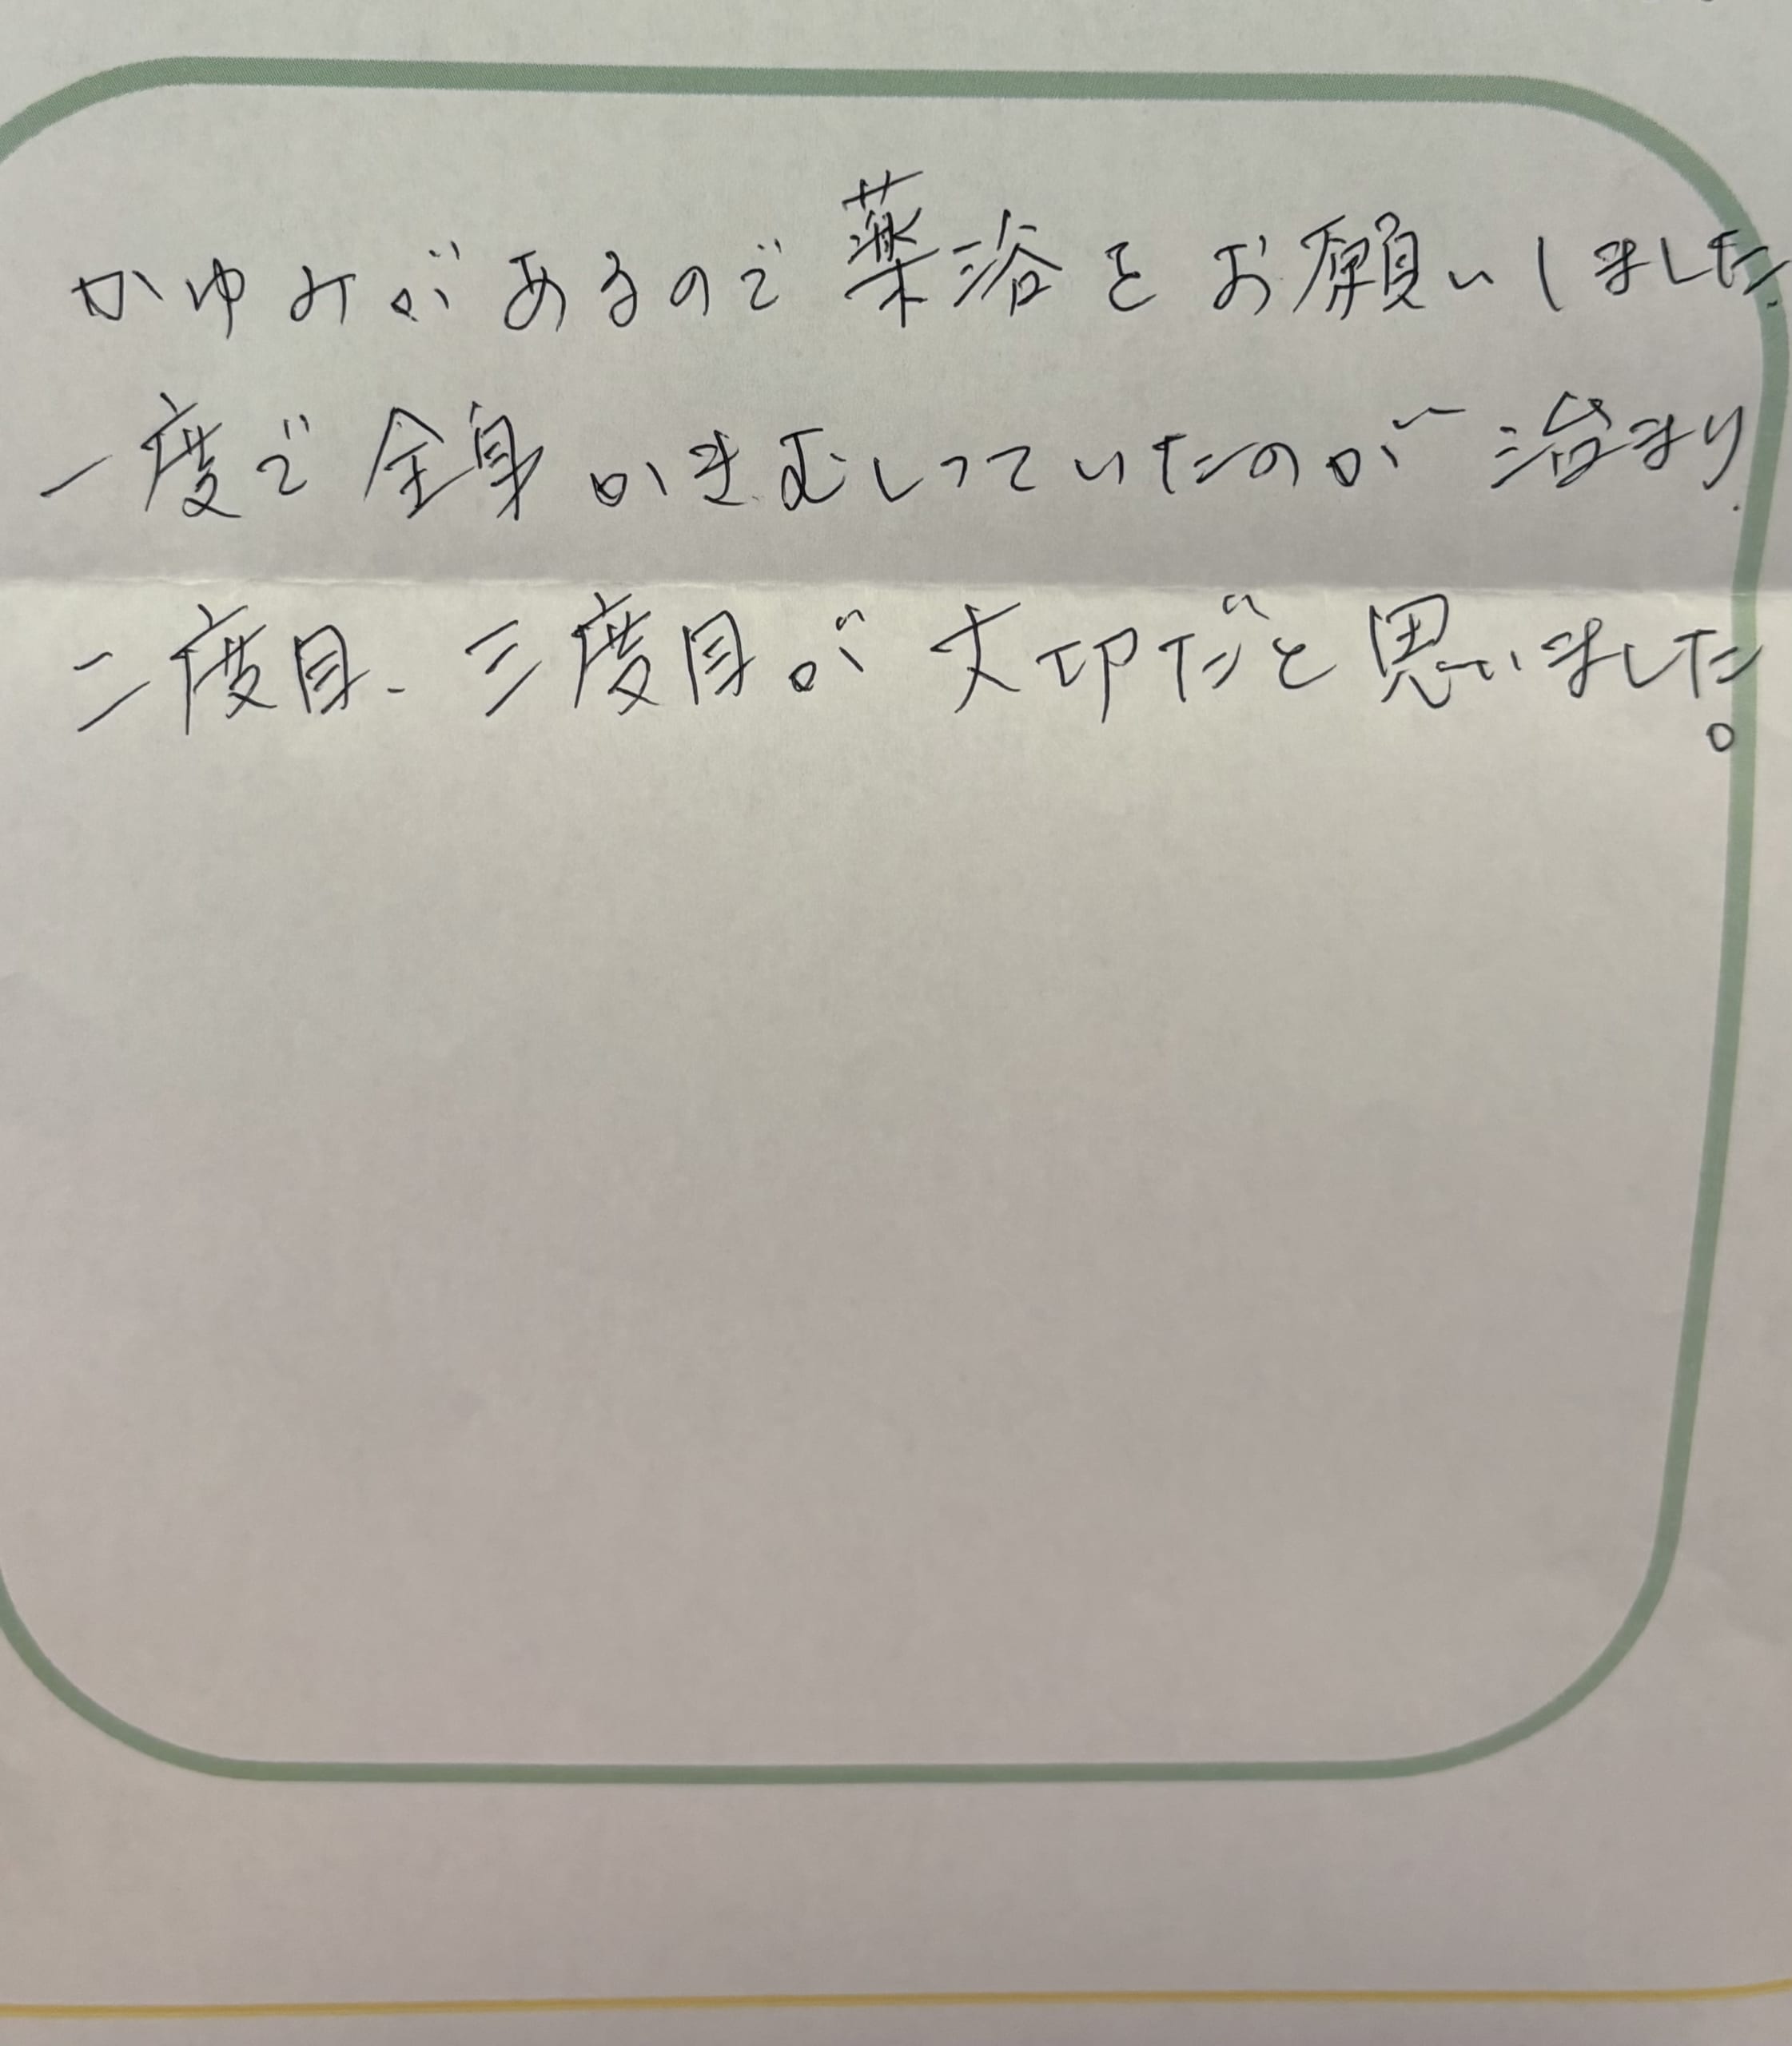 かゆみがあるので薬浴をお願いしました。
一度で全身かきむしっていたのが治まり、
二度目、三度目が大切だと思いました。